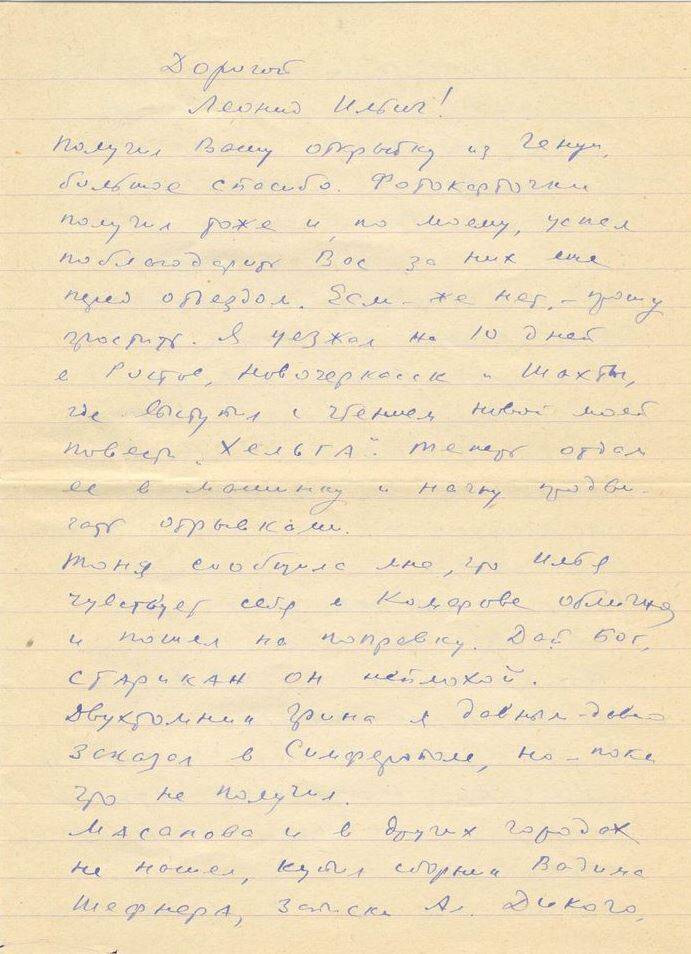 Дорогой
Леонид Ильич!
Получил Вашу открытку из Генуи,
большое спасибо. Фотокарточки
получил тоже и, по моему, успел
поблагодарить Вас за них еще
перед отъездом. Если-же нет, – прошу
простить. Я уезжал на 10 дней
в Ростов, Новочеркасск и Шахты,
где выступил с чтением новой моей
повести "Хельга". Теперь отдам
ее в машинку и начну продви-
гать отрывками.
Тоня сообщила мне, что Илья
чувствует себя в Комарове отлично
и пошел на поправку. Дай Бог,
старикан он неплохой.
Двухтомник Грина я давным-давно
заказал в Симферополе, но – пока
что не получил.
Масанова и в других городах
не нашел, купил сборник Вадима
Шефнера, записки Ал. Дикого,